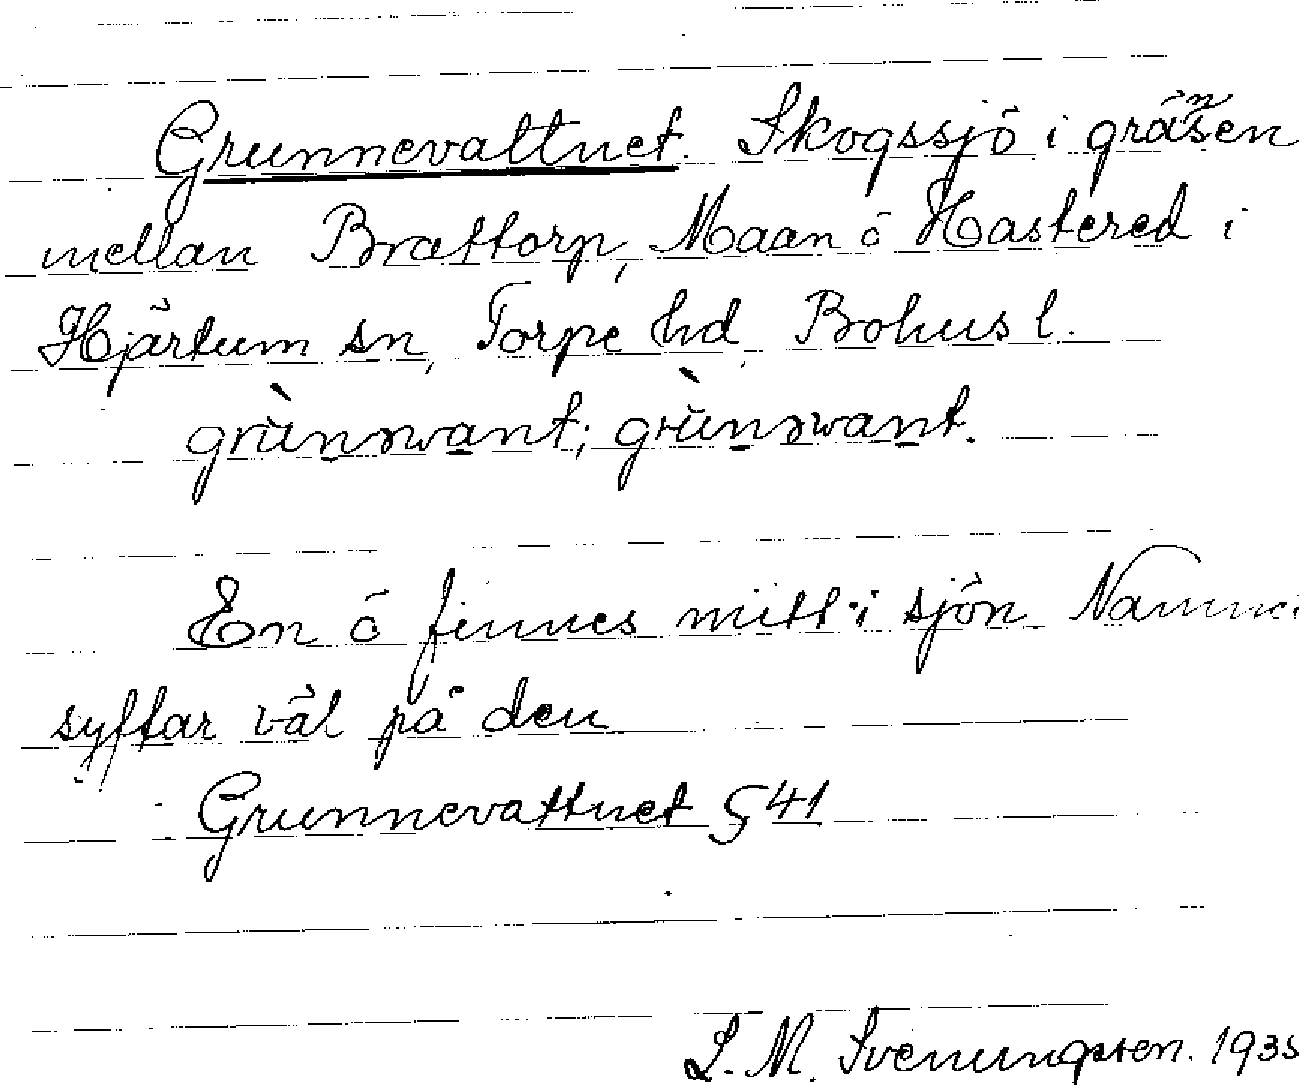 Grunnevattnet. Skogssjö i gränsen
mellan Brattorp, Maan ö Hastered i
Hjärtum sn, Torpe hd, Bohus l.
grùnnəvant; grùnəvant.
En ö finnes mitt i sjön. Namnet
syftar väl på den
Grunnevattnet S 41
L. M. Svenungsson. 1935